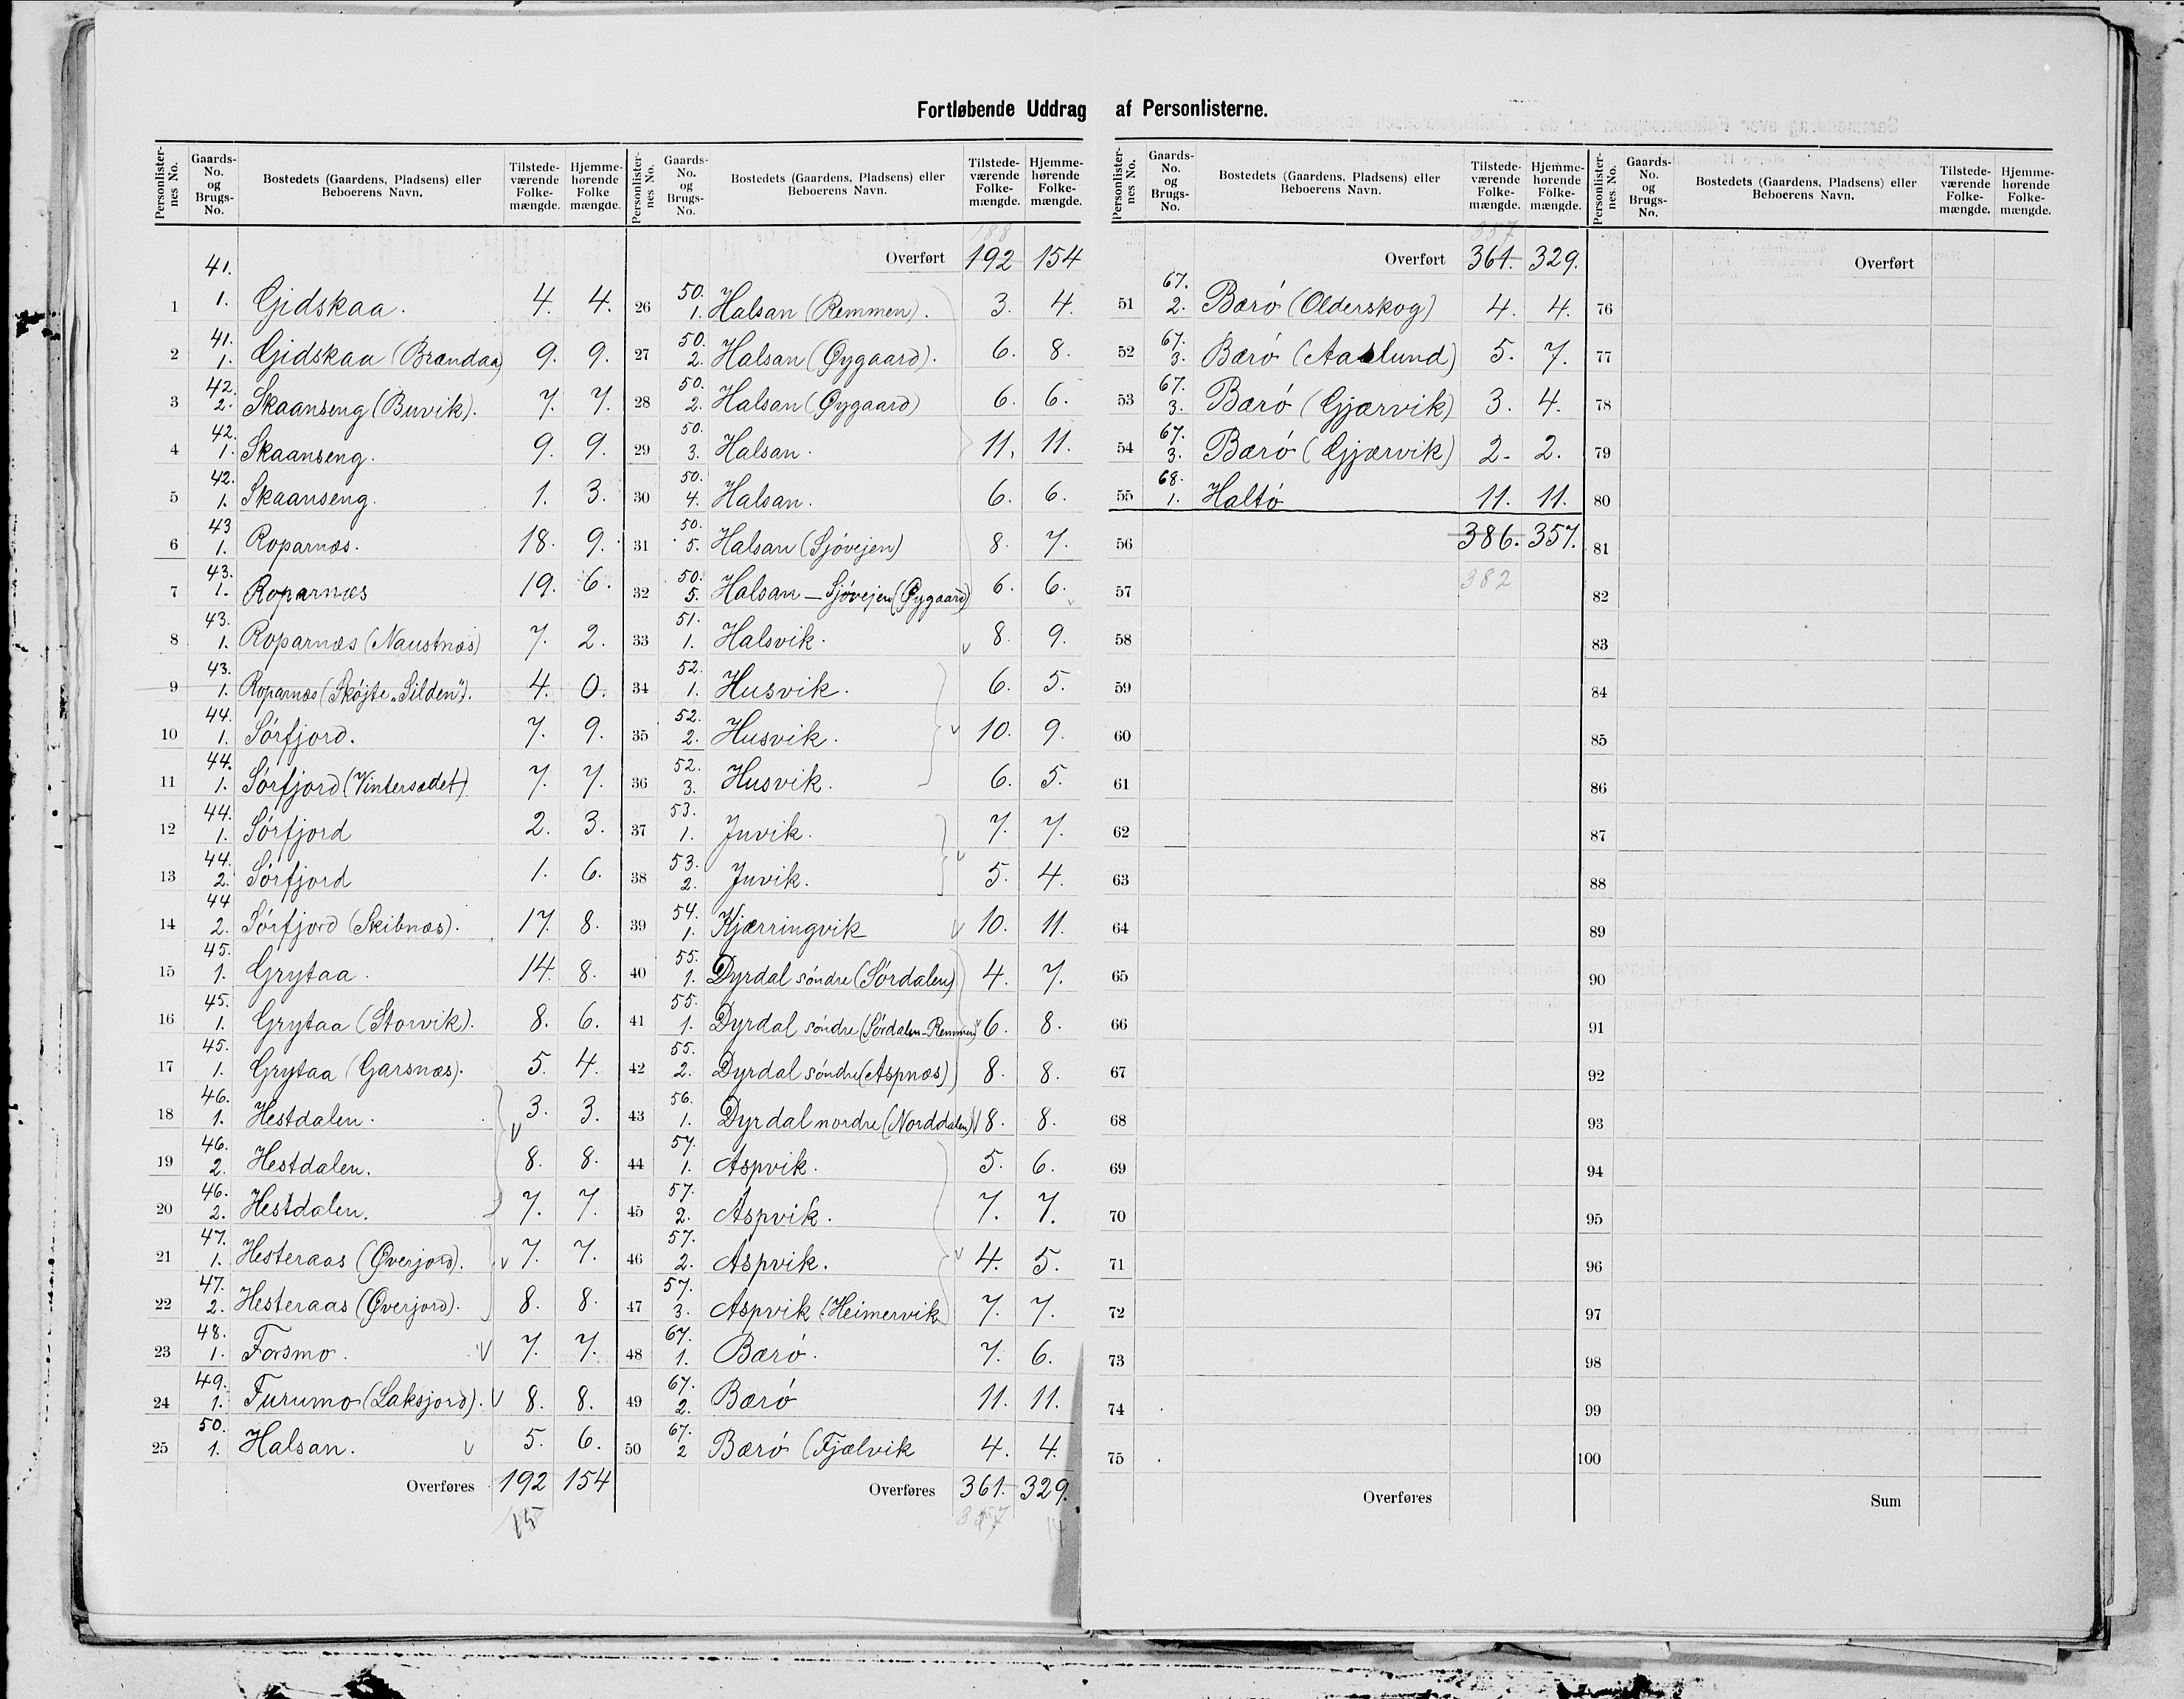 Fortløbende Uddrag af Personlisterne.
Personlisternes No. Gaards-No. og Brugs-No. Bostedets (Gaardens, Pladsens) eller Beboerens Navn. Tilstedeværende Folkemængde. Hjemmehørende Folke mængde.
1 41. 1. Gidskaa. 4. 4.
2 41. 1. Gidskaa (Brændaa) 9. 9.
3 42. 2. Skaanseng (Buvik). 7. 7.
4 42. 1. Skaanseng. 9. 9.
5 42. 1. Skaanseng. 1. 3.
6 43 1. Roparnæs. 18. 9.
7 43. 1. Roparnæs 19. 6.
8 43. 1. Roparnæs (Naustnæs) 7. 2.
9 43. 1. Roparnæs (Skøjte „Silden"). 4. 0.
10 44. 1. Sørfjord. 7. 9.
11 44. 1. Sørfjord (Vintersædet) 7. 7.
12 44. 1. Sørfjord 2. 3.
13 44. 2. Sørfjord 1. 6.
14 44 2. Sørfjord (Skibnæs). 17. 8.
15 45. 1. Grytaa. 14. 8.
16 45. 1. Grytaa (Storvik). 8. 6.
17 45. 1. Grytaa (Garsnæs). 5. 4.
18 46. 1. Hestdalen. 3. 3.
19 46. 2. Hestdalen. 8. 8.
20 46. 2. Hestdalen. 7. 7.
21 47. 1. Hesteraas (Øverjord). 7. 7.
22 47. 2. Hesteraas (Øverjord). 8. 8.
23 48. 1. Forsmo. 7. 7.
24 49. 1. Furumo (Laksjord). 8. 8.
25 50. 1. Halsan. 5. 6.
Overføres 192 154
Personlisternes No. Gaards-No. og Brugs-No. Bostedets (Gaardens, Pladsens) eller Beboerens Navn. Tilstedeværende Folkemængde. Hjemmehørende Folkemængde.
188
Overført 192 154
26 50. 1. Halsan (Remmen). 3. 4.
27 50. 2. Halsan (Øygaard). 6. 8.
28 50. 2. Halsan (Øygaard) 6. 6.
29 50. 3. Halsan. 11. 11.
30 50. 4. Halsan. 6. 6.
31 50. 5. Halsan (Sjøvejen) 8. 7.
32 50. 5. Halsan – Sjøvejen (Øygaard) 6. 6.
33 51. 1. Halsvik. 8. 9.
34 52. 1. Husvik. 6. 5.
35 52. 2. Husvik. 10. 9.
36 52. 3. Husvik. 6. 5.
37 53. 1. Juvik. 7. 7.
38 53. 2. Juvik. 5. 4.
39 54. 1. Kjærringvik 10. 11.
40 55. 1. Dyrdal søndre (Sørdalen) 4. 7.
41 55. 1. Dyrdal søndre (Sørdalen-Remmen) 6. 8.
42 55. 2. Dyrdal søndre (Aspnæs) 8. 8.
43 56. 1. Dyrdal nordre (Norddalen) 8. 8.
44 57. 1. Aspvik. 5. 6.
45 57. 2. Aspvik. 7. 7.
46 57. 2. Aspvik. 4. 5.
47 57. 3. Aspvik (Heimervik) 7. 7.
48 67. 1. Bærø. 7. 6.
49 67. 2. Bærø 11. 11.
50 67. 2 Bærø (Fjælvik 4. 4.
Overføres 361. 329.
357
Personlisternes No. Gaards-No. og Brugs-No. Bostedets (Gaardens, Pladsens) eller Beboerens Navn. Tilstedeværende Folkemængde. Hjemmehørende Folkemængde.
357
Overført 361. 329.
51 67. 2. Bærø (Olderskog) 4. 4.
52 67. 3. Bærø (Aaslund) 5. 7.
53 67. 3. Bærø (Gjærvik) 3. 4.
54 67. 3. Bærø (Gjærvik) 2. 2.
55 68. 1. Haltø 11. 11.
56 386. 357.
57 382
58
59
60
61
62
63
64
65
66
67
68
69
70
71
72
73
74
75
Overføres
Personlisternes No. Gaards-No. og Brugs-No. Bostedets (Gaardens, Pladsens) eller Beboerens Navn. Tilstedeværende Folkemængde. Hjemmehørende Folkemængde.
Overført
76
77
78
79
80
81
82
83
84
85
86
87
88
89
90
91
92
93
94
95
96
97
98
99
100
Sum